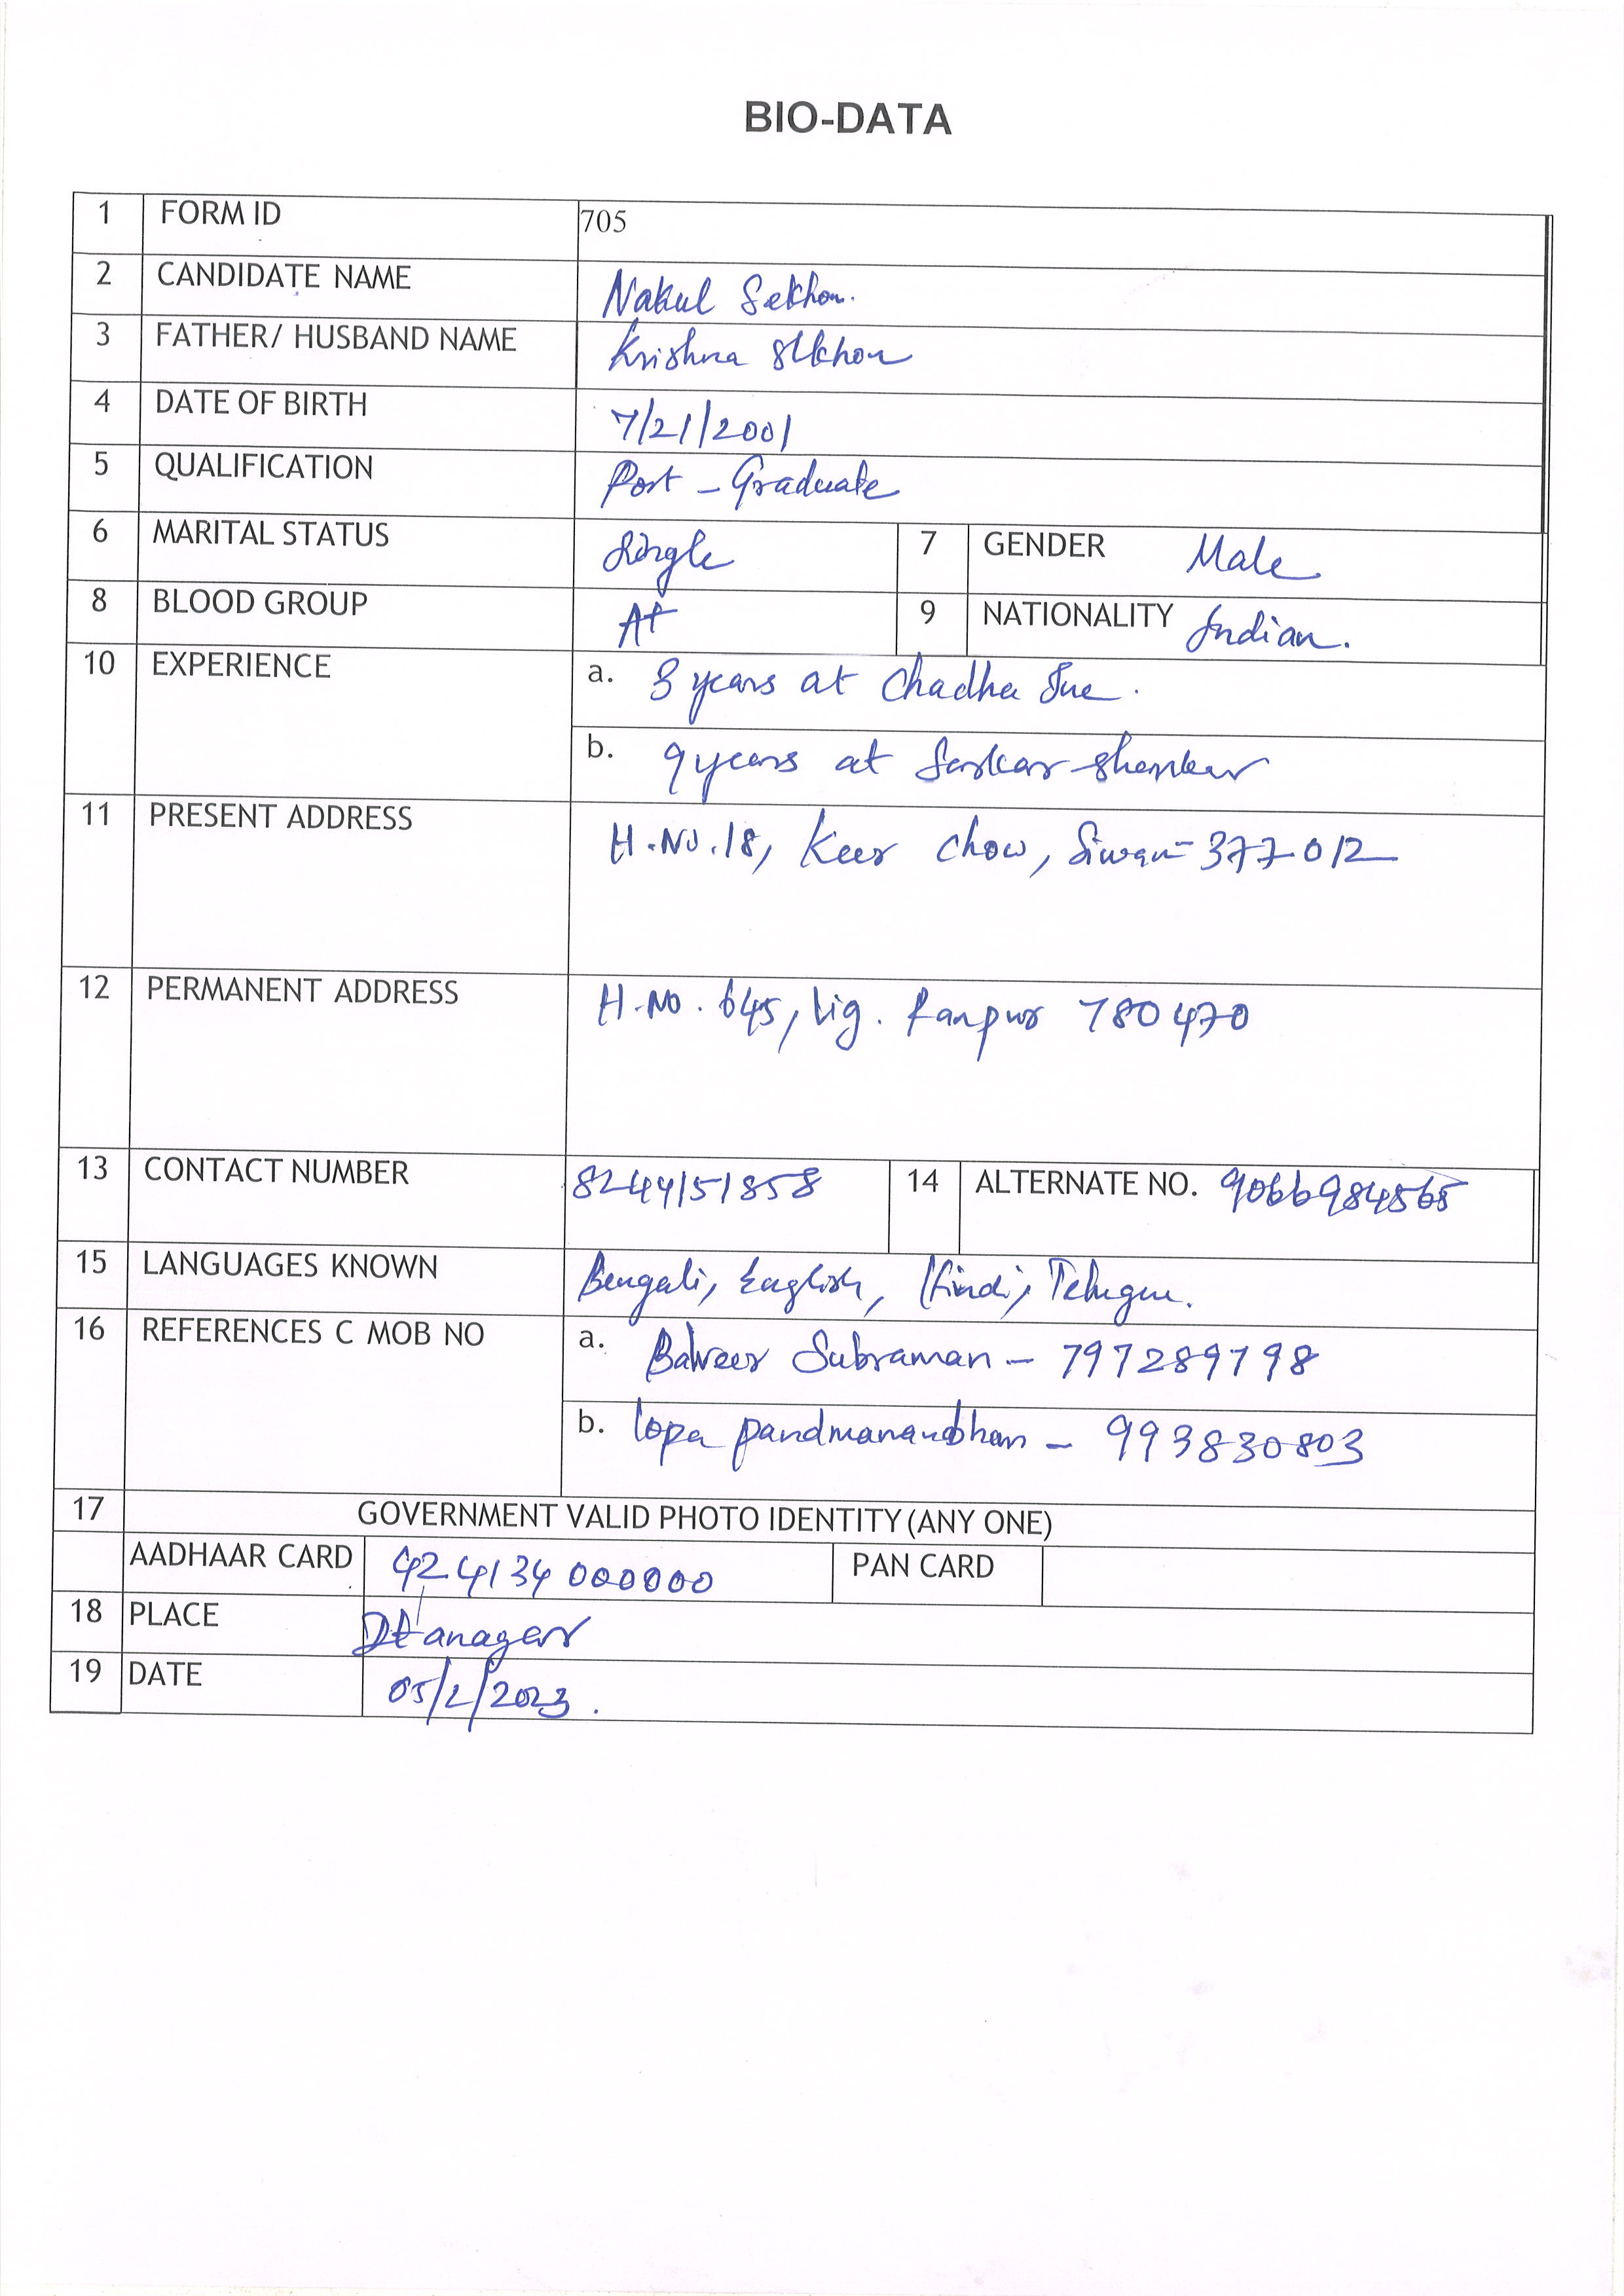 BIO-DATA
1 FORM ID 705
2 CANDIDATE NAME Nakul Sekhon.
3 FATHER/ HUSBAND NAME Krishna Sekhon
4 DATE OF BIRTH 7/21/2001
5 QUALIFICATION Post - Graduate
6 MARITAL STATUS Single 7 GENDER Male
8 BLOOD GROUP A+ 9 NATIONALITY Indian.
10 EXPERIENCE a. 3 years at Chadha Inc.
b. 9 years at Sarkar-Shanker
11 PRESENT ADDRESS H.No.18, Keer Chow, Siwan-377012
12 PERMANENT ADDRESS H.No. 645, Lig. Rampur 780470
13 CONTACT NUMBER 8244151858 14 ALTERNATE NO. 9066984565
15 LANGUAGES KNOWN Bengali, English, Hindi, Telugu.
16 REFERENCES C MOB NO a. Balveer Subraman - 797289798
b. lopa pandmanaubhan - 993830803
17 GOVERNMENT VALID PHOTO IDENTITY (ANY ONE)
AADHAAR CARD 424134000000 PAN CARD
18 PLACE
19 DATE 05/2/2023.